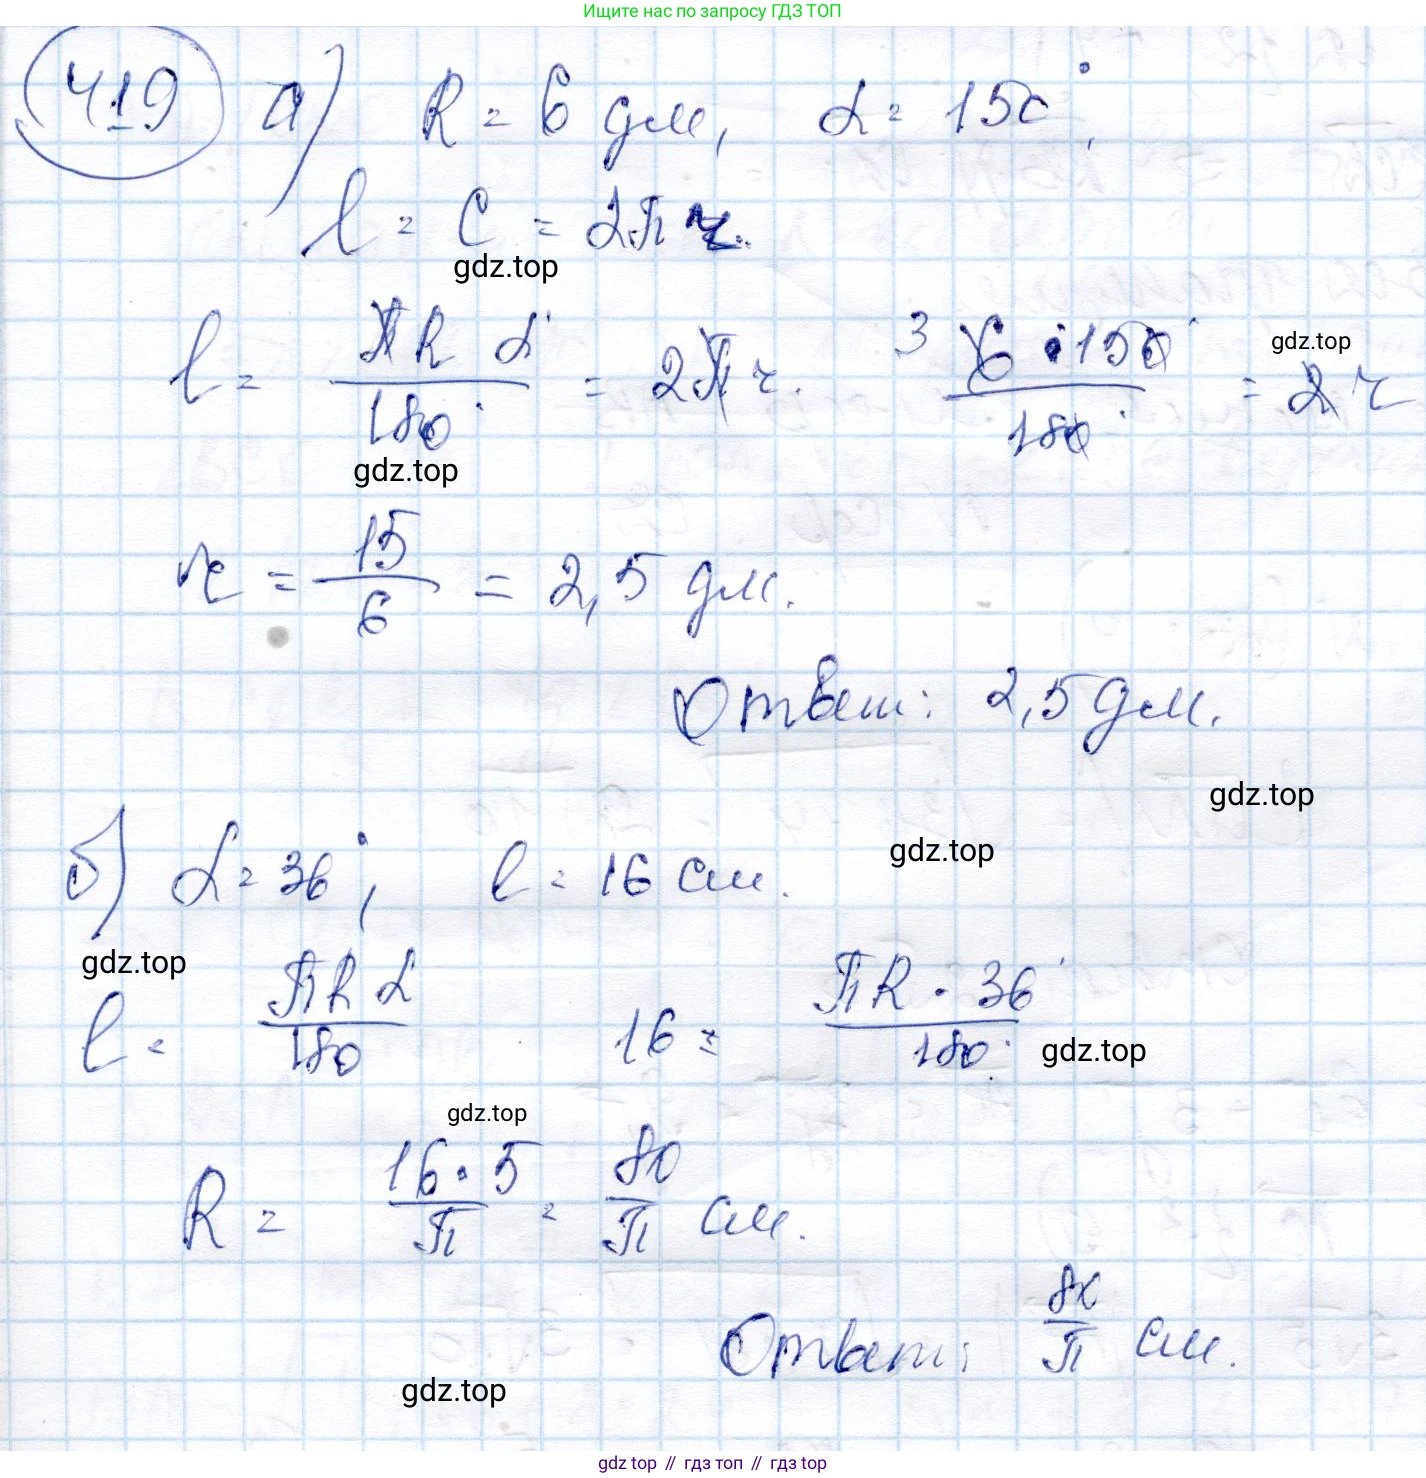 Ищите нас по запросу ГДЗ ТОП
419 а) R = 6 дм, α = 150°,
l = C = 2πr.
gdz.top
l = πRα / 180° = 2πr. 3 6 · 150° / 180° = 2r
gdz.top
gdz.top
r = 15/6 = 2,5 дм.
Ответ: 2,5 дм.
gdz.top
gdz.top
б) α = 36°, l = 16 см.
gdz.top
l = πRα / 180 16 = πR · 36° / 180°
gdz.top
gdz.top
R = 16 · 5 / π = 80/π см.
Ответ: 80/π см.
gdz.top
gdz.top // гдз топ // гдз top